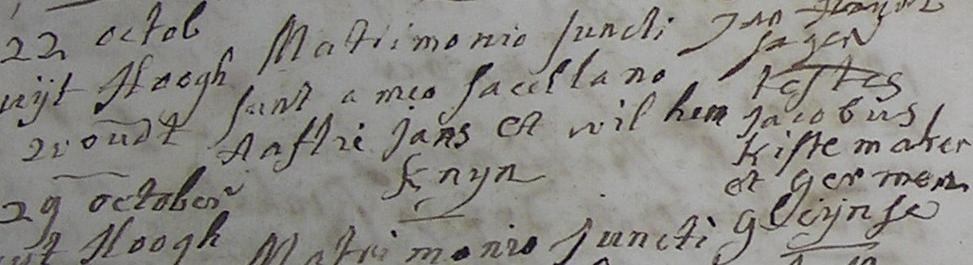 22 octob Matrimonio juncti Jan
Sager
uijt Hoogh sunt a meo sacellano testes
woudt Aaftie Jans et wilhem jacobus
Knyn kistemaker
29 october et germen
Gleijnse
uijt Hoogh Matrimonio juncti